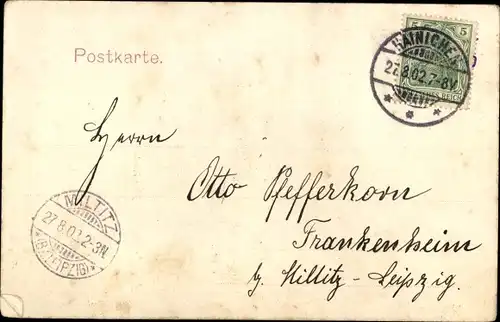 Postkarte.
5 5
HAINICHEN
27.8.02.7-8V
REICH
Herrn
Otto Pfefferkorn
Frankenheim
b. Miltitz-Leipzig.
MILTITZ
27.8.02.2-3N
(BZ. LEIPZIG)